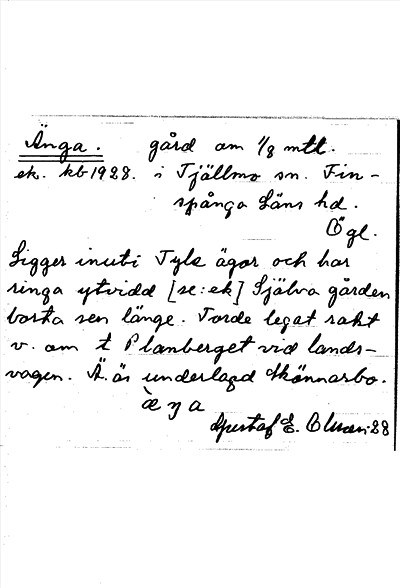 Änga. gård om 1/8 mtl.
ek. kb 1928. i Tjällmo sn. Fin-
spånga Läns hd.
Ögl.
Ligger inuti Tyle ägor och har
ringa ytvidd [se: ek] Själva gården
borta sen länge. Torde legat rakt
v. om t Planberget vid lands-
vagen. Ä. är underlagd Skönnarbo.
Gustaf E. Olson 28